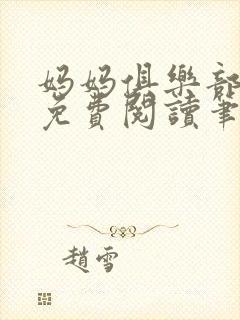 媽媽俱樂部
免費閱讀筆
趙雪